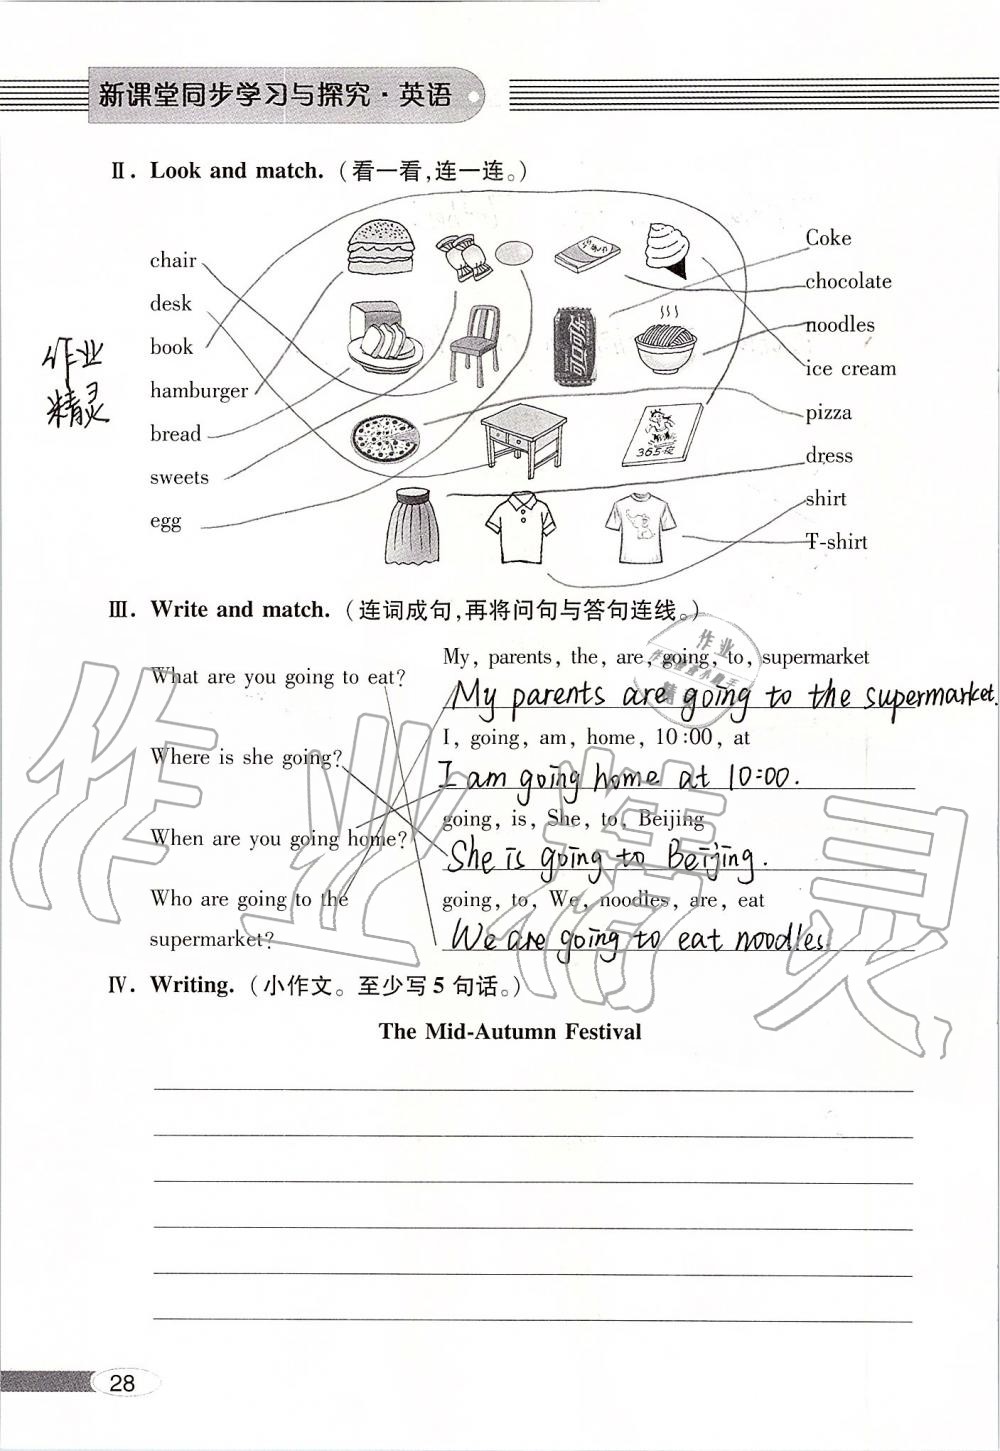 新课堂同步学习与探究·英语
Ⅱ. Look and match. (看一看,连一连。)
chair
desk
book
hamburger
bread
sweets
egg
作业
精灵
可口可乐
365夜
Coke
chocolate
noodles
ice cream
pizza
dress
shirt
T-shirt
Ⅲ. Write and match. (连词成句,再将问句与答句连线。)
What are you going to eat?
Where is she going?
When are you going home?
Who are going to the
supermarket?
My, parents, the, are, going, to, supermarket
My parents are going to the supermarket.
I, going, am, home, 10:00, at
I am going home at 10:00.
going, is, She, to, Beijing
She is going to Beijing.
going, to, We, noodles, are, eat
We are going to eat noodles.
Ⅳ. Writing. (小作文。至少写5句话。)
The Mid-Autumn Festival
作业精灵
28